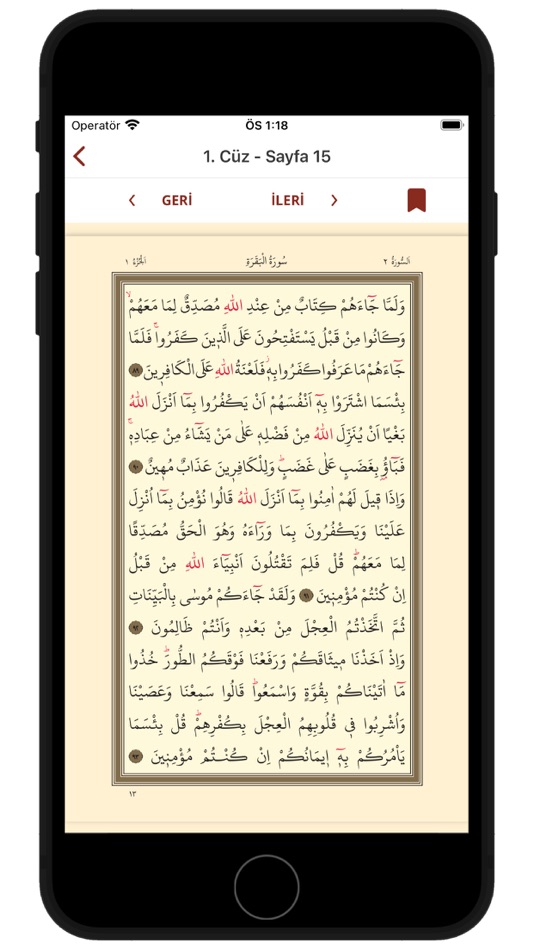 Operatör ÖS 1:18
1. Cüz - Sayfa 15
GERİ İLERİ
اَلسُّورَةُ ٢ سُورَةُ الْبَقَرَةِ اَلْجُزْءُ ١
وَلَمَّا جَٓاءَهُمْ كِتَابٌ مِنْ عِنْدِ اللّٰهِ مُصَدِّقٌ لِمَا مَعَهُمْۙ
وَكَانُوا مِنْ قَبْلُ يَسْتَفْتِحُونَ عَلَى الَّذِينَ كَفَرُواۚ فَلَمَّا
جَٓاءَهُمْ مَا عَرَفُوا كَفَرُوا بِهٖۘ فَلَعْنَةُ اللّٰهِ عَلَى الْكَافِرِينَ ٨٩
بِئْسَمَا اشْتَرَوْا بِهٖٓ اَنْفُسَهُمْ اَنْ يَكْفُرُوا بِمَٓا اَنْزَلَ اللّٰهُ
بَغْيًا اَنْ يُنَزِّلَ اللّٰهُ مِنْ فَضْلِهٖ عَلٰى مَنْ يَشَٓاءُ مِنْ عِبَادِهٖۚ
فَبَٓاؤُ۫ بِغَضَبٍ عَلٰى غَضَبٍۜ وَلِلْكَافِرِينَ عَذَابٌ مُهٖينٌ ٩٠
وَاِذَا قٖيلَ لَهُمْ اٰمِنُوا بِمَٓا اَنْزَلَ اللّٰهُ قَالُوا نُؤْمِنُ بِمَٓا اُنْزِلَ
عَلَيْنَا وَيَكْفُرُونَ بِمَا وَرَٓاءَهُ وَهُوَ الْحَقُّ مُصَدِّقًا
لِمَا مَعَهُمْۜ قُلْ فَلِمَ تَقْتُلُونَ اَنْبِيَٓاءَ اللّٰهِ مِنْ قَبْلُ
اِنْ كُنْتُمْ مُؤْمِنٖينَ ٩١ وَلَقَدْ جَٓاءَكُمْ مُوسٰى بِالْبَيِّنَاتِ
ثُمَّ اتَّخَذْتُمُ الْعِجْلَ مِنْ بَعْدِهٖ وَاَنْتُمْ ظَالِمُونَ ٩٢
وَاِذْ اَخَذْنَا مٖيثَاقَكُمْ وَرَفَعْنَا فَوْقَكُمُ الطُّورَۜ خُذُوا
مَٓا اٰتَيْنَاكُمْ بِقُوَّةٍ وَاسْمَعُواۜ قَالُوا سَمِعْنَا وَعَصَيْنَا
وَاُشْرِبُوا فٖي قُلُوبِهِمُ الْعِجْلَ بِكُفْرِهِمْۜ قُلْ بِئْسَمَا
يَأْمُرُكُمْ بِهٖٓ اٖيمَانُكُمْ اِنْ كُنْتُمْ مُؤْمِنٖينَ ٩٣
١٣